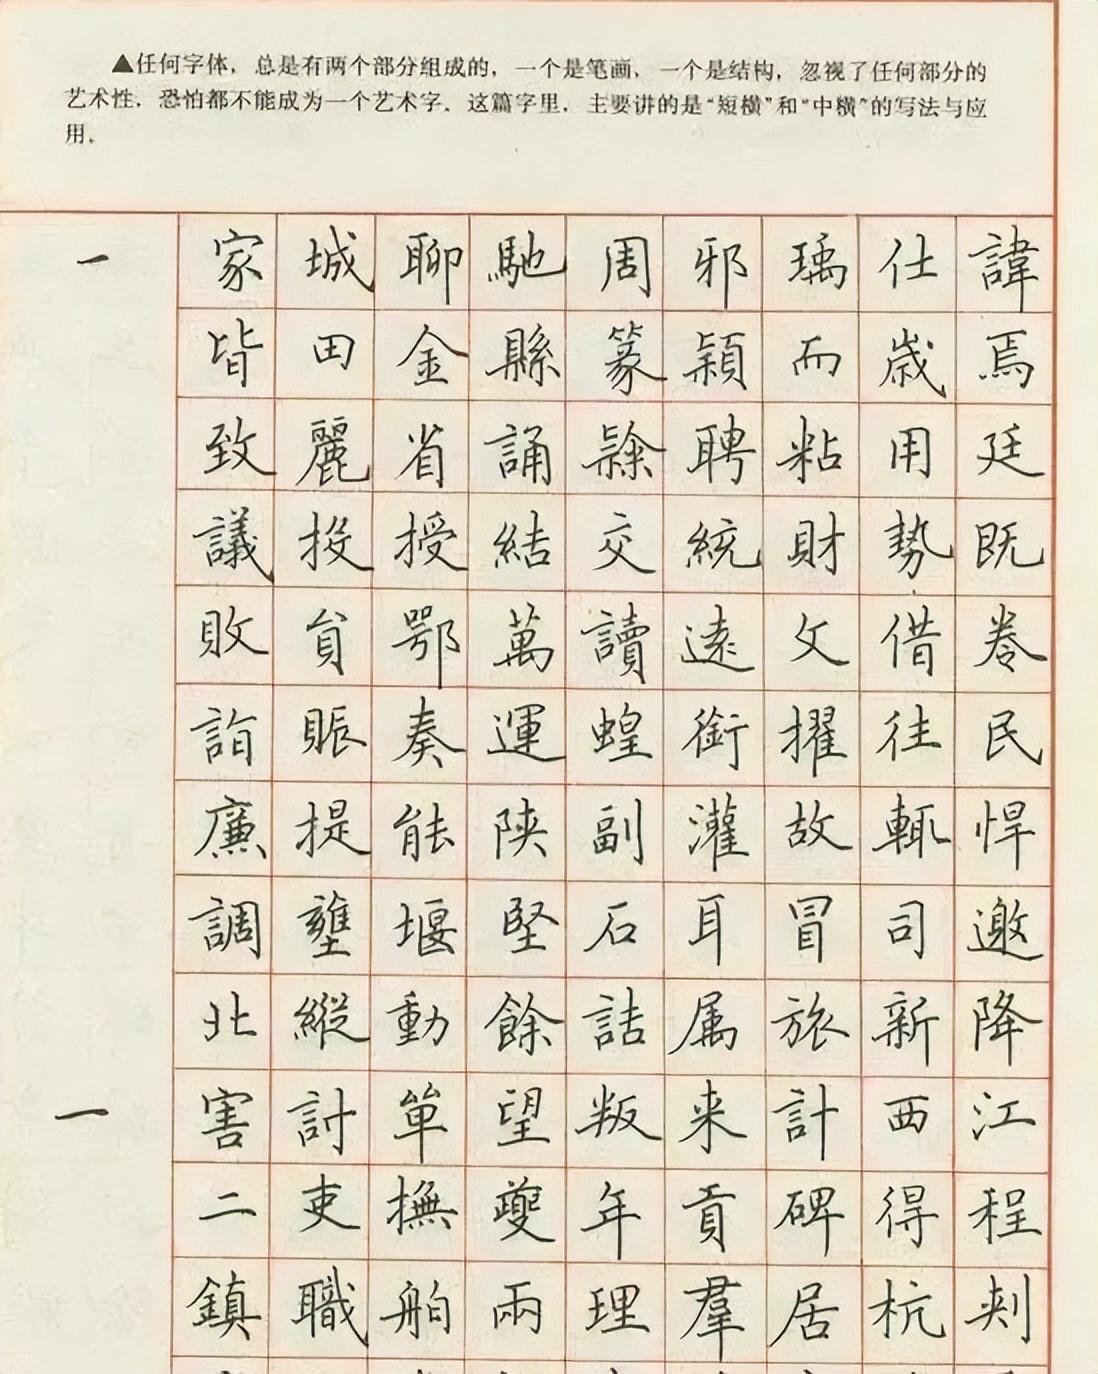 ▲任何字体，总是有两个部分组成的，一个是笔画，一个是结构，忽视了任何部分的
艺术性，恐怕都不能成为一个艺术字。这篇字里，主要讲的是“短横”和“中横”的写法与应
用。
一
一
家城聊馳周邪瑀仕諱
皆田金縣篆穎而歲焉
致麗省誦隸聘粘用廷
議投授結交統財勢既
敗貟鄂萬讀遠文借卷
詣賑奏運蝗銜擢往民
廉提能陝副灌故輒悍
調壅堰堅石耳冒司邀
北縱動餘詰属旅新降
害討単望叛来計西江
二吏撫夔年貢碑得程
鎮職舶兩理羣居杭刾